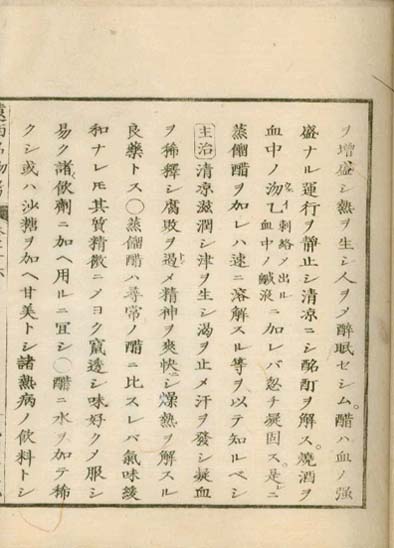 ヲ增盛シ熱ヲ生シ人ヲメ醉眠セシム。醋ハ血ノ强
盛ナル運行ヲ静止シ清凉ニシ酩酊ヲ解ス。燒酒ヲ
血中ノ沕乙 刺絡メ出ル血中ノ鹹液 ニ加レバ忽チ凝固ス。是ニ
蒸餾醋ヲ加レハ速ニ溶解スル等ヲ以テ知ルベシ
主治 清凉滋潤シ津ヲ生シ渴ヲ止メ汗ヲ發シ凝血
ヲ稀釋シ腐敗ヲ遏メ精神ヲ爽快シ燥熱ヲ解スル
良藥トス〇蒸餾醋ハ尋常ノ醋ニ比スレバ氣味緩
和ナレ𪜈其質精微ニメヨク竄透シ味好クメ服シ
易ク諸飲劑ニ加ヘ用ルニ宜シ〇醋ニ水ヲ加テ稀
クシ或ハ沙糖ヲ加ヘ甘美トシ諸熱病ノ飲料トシ
遠西名物考